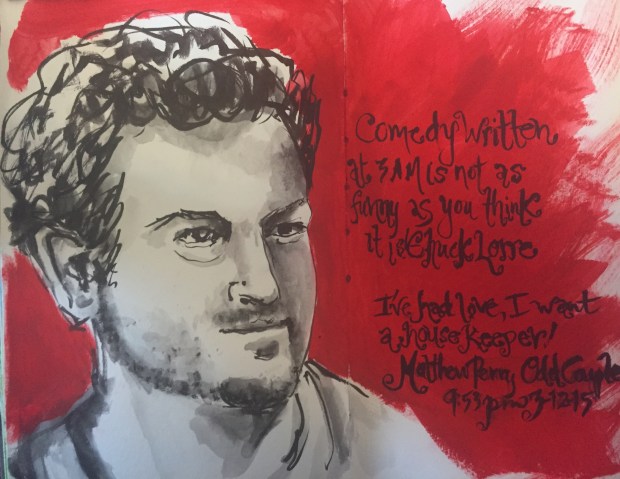 Comedy Written
at 3AM is not as
funny as you think
it is Chuck Lorre
I've had love, I want
a house keeper!
Matthew Perry Odd Couple
9:53pm 3-12-15